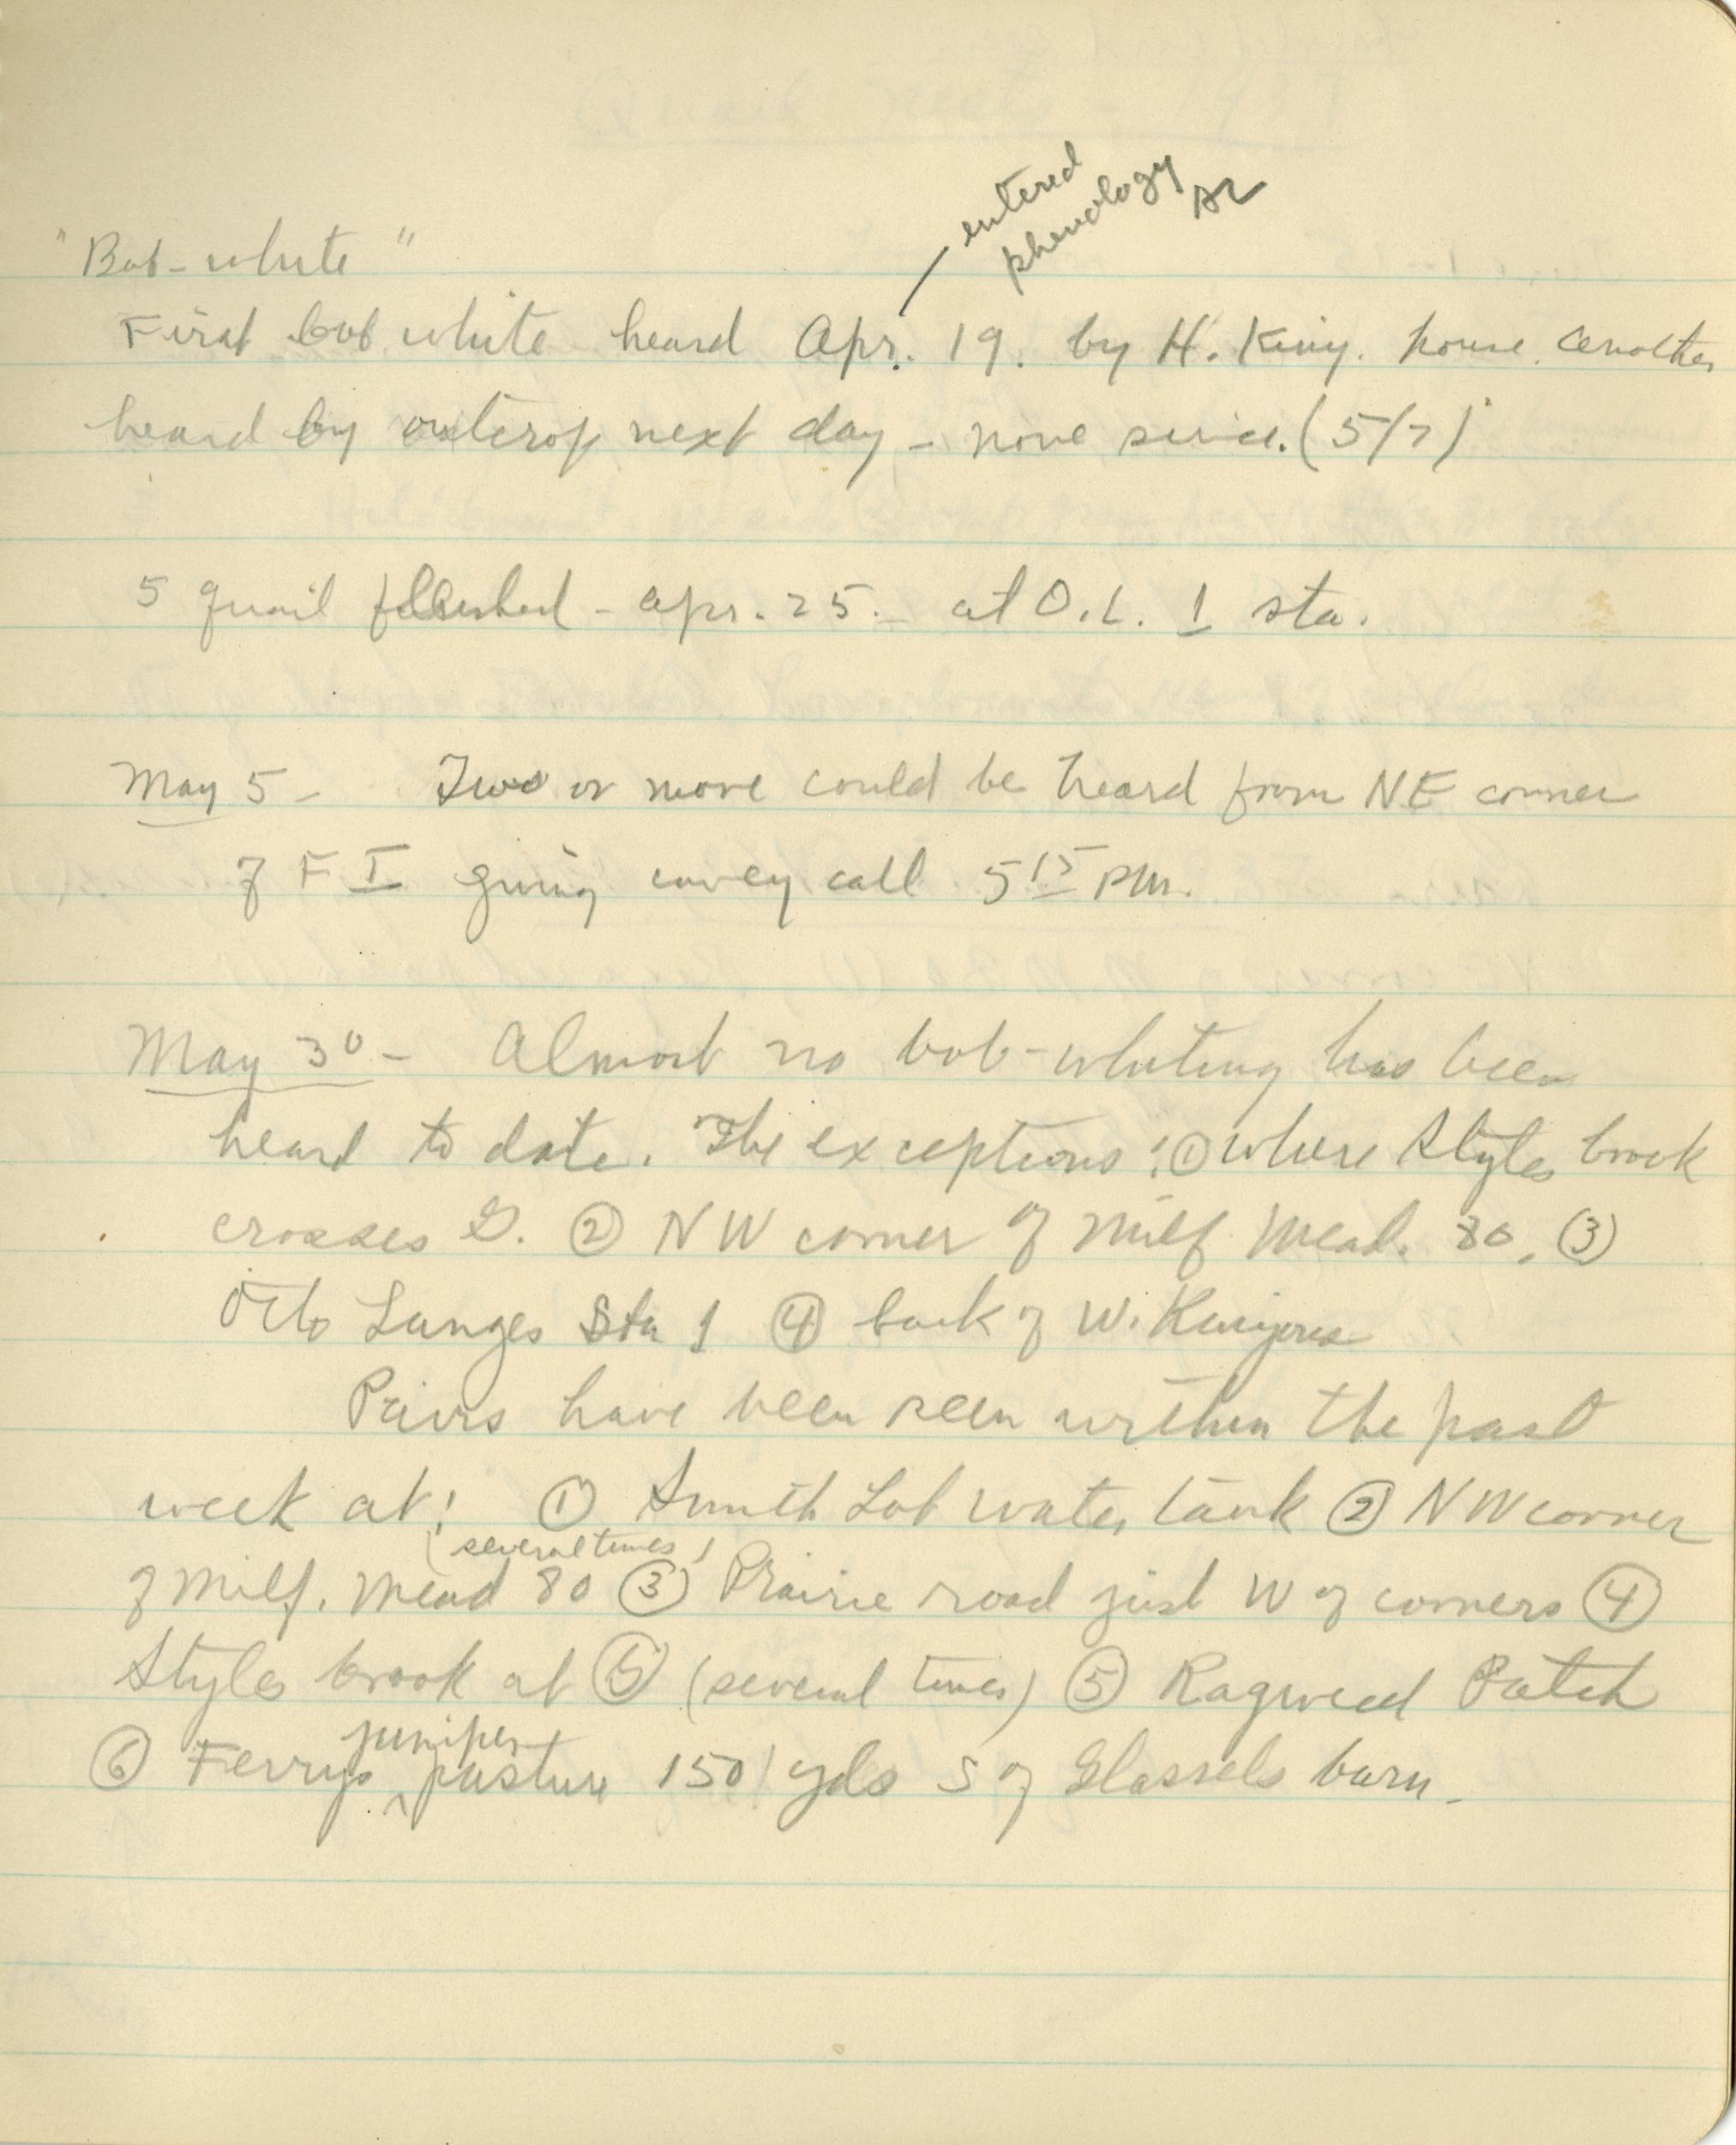 entered
phenology AL
"Bob-white"
First bob white heard Apr. 19. by H. King. house. Another
heard by outcrop next day - none since. (5/7)
5 quail flushed - Apr. 25. - at O.L. 1 sta.
May 5 - Two or more could be heard from NE corner
of F I giving covey call 5 15 PM.
May 30 - Almost no bob-whiting has been
heard to date. The exceptions: ① where Styles brook
crosses G. ② NW corner of Milf Mead. 80. ③
Otto Langes Sta 1 ④ back of W.
Pairs have been seen within the past
week at: ① Smith Lot water tank ② NW corner
(several times)
of Milf. Mead 80 ③ Prairie road just W of corners ④
Styles brook at Ⓖ (several times) ⑤ Ragweed Patch
juniper
⑥ Ferrys ^ pasture 150 yds S of Glassels barn.